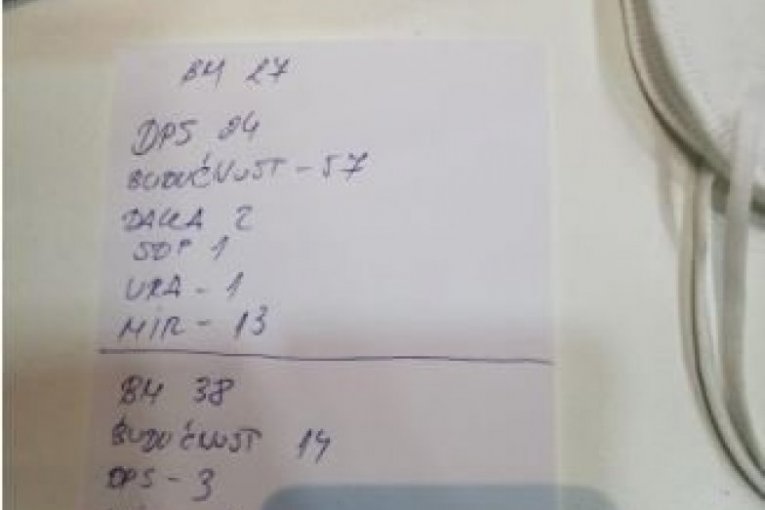 BM 27
DPS 24
BUDUĆNUST - 57
SDP 1
URA - 1
MIR - 13
BM 38
BUDUĆNUST 14
DPS - 3